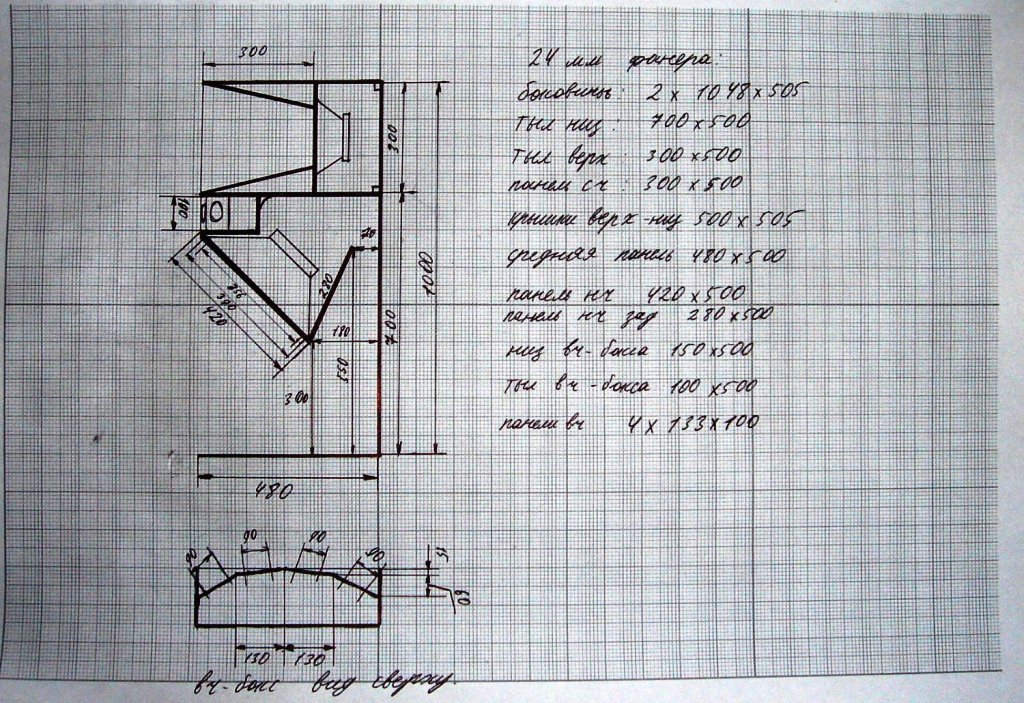 300
24 мм фанера:
боковины: 2 x 1048 x 505
тыл низ: 700 x 500
тыл верх: 300 x 500
панель сч: 300 x 500
крышки верх-низ 500 x 505
средняя панель 480 x 500
панель нч 420 x 500
панель нч зад 280 x 500
низ вч-бокса 150 x 500
тыл вч-бокса 100 x 500
панели вч 4 x 133 x 100
300
100
70
1000
280
390
420
180
700
550
300
480
90
90
90
15
60
130
130
вч-бокс вид сверху.